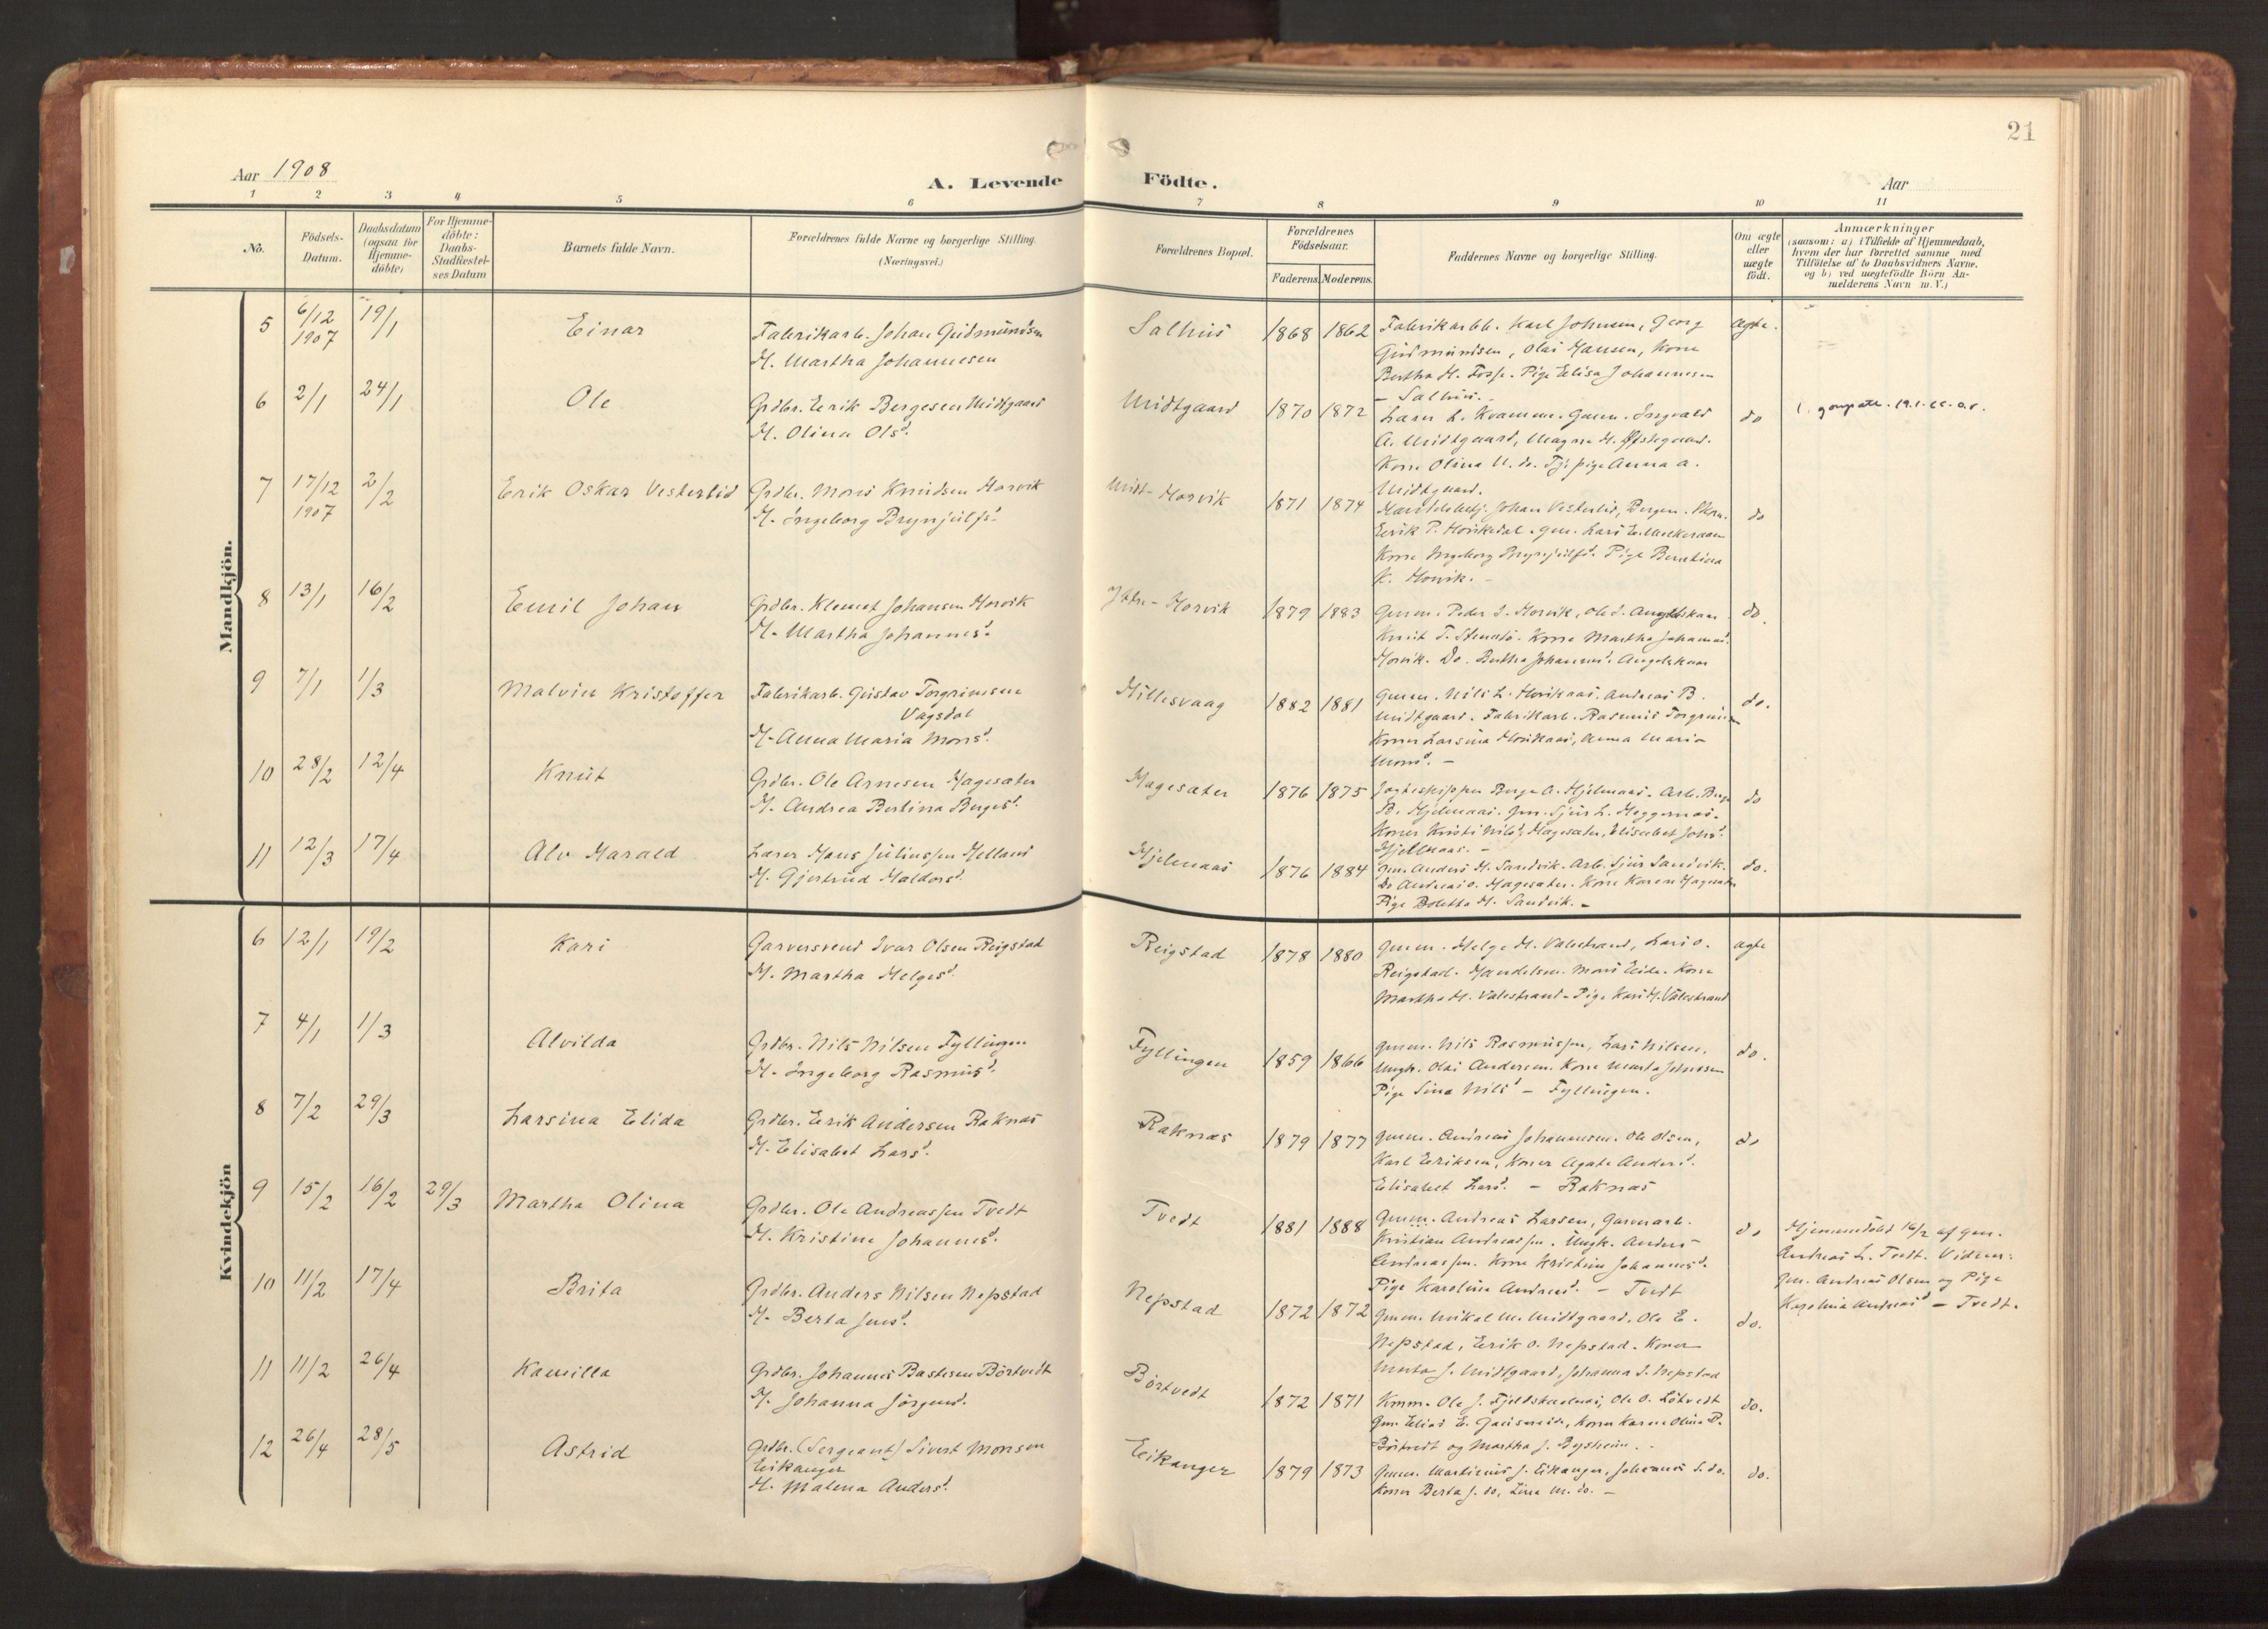 21
Aar 1908
A. Levende Födte.
Aar
1 2 3 4 5 6 7 8 9 10 11
No.
Födsels-Datum.
Daabsdatum (ogsaa for Hjemme-döbte)
For Hjemme-döbte: Daabs-Stadfæstel-ses Datum
Barnets fulde Navn.
Forældrenes fulde Navne og borgerlige Stilling.
(Næringsvei.)
Forældrenes Bopæl.
Forældrenes Födselsaar.
Faderens. Moderens.
Faddernes Navne og borgerlige Stilling.
Om ægte eller uægte födt.
Anmærkninger
(saasom: a) i Tilfælde af Hjemmedaab,
hvem der har forrettet samme med
Tilföielse af to Daabsvidners Navne.
og b) ved uægtefödte Börn An-
melderens Navn m.V.)
Mandkjön.
5 6/12 1907 19/1 Einar
Fabrikarb. Johan Gudmundsen
H. Martha Johannesen
Salhus 1868 1862
Fabrikarbb. Karl Johnsen, Georg
Gudmundsen, Olai Hansen, Kone
Bertha H. Fosse. Pige Elisa Johannesen
- Salhus. -
ægte.
6 2/1 24/1 Ole
Grdbr. Erik Bergesen Midtgaard
H. Olina Olsd.
Midtgaard 1870 1872
Lærer L. Kvamme. Gmm. Ingvald
A. Midtgaard, Magne H. Østegaard.
Kone Olina U. do. Tj. pige Anna A.
Midtgaard.
do
7 17/12 1907 2/2 Erik Oskar Vesterlid
Grdbr. Mons Knudsen Horvik
H. Ingeborg Brynjulfsd.
Midt-Horvik 1871 1874
Johan Vesterlid, Bergen.
Erik P. Gm. Lars E.
Kone Ingeborg Brynjulfsd. Pige Berntina
K. Horvik. -
do
8 13/1 16/2 Emil Johan
Grdbr. Klemet Johansen Horvik
H. Martha Johannesd.
Ytre-Horvik 1879 1883
Gmm. Peder J. Horvik, Ole J. Angelskaar
Knut T. Kone Martha Johannesd.
Horvik. Do. Bertha Johannesd. Angelskaar
do.
9 7/1 1/3 Malvin Kristoffer
Fabrikarb. Gustav Torgrimsen
Vagsdal
H. Anna Maria Monsd.
Hillesvaag 1882 1881
Gmm. Nils L. Andreas B.
Midtgaard. Fabrikarb. Rasmus Torgrimsen
Koner Larsina Anna Maria
Monsd. -
do.
10 28/2 12/4 Knut
Grdbr. Ole Arnesen Hagesæter
H. Andrea Bertina Bergesd.
Hagesæter 1876 1875
Jagteskipper Berge A. Hjelmaas. Arb. Berge
B. Hjelmaas. Gm. Sjur L. Heggernæs.
Koner Kristi Nilsd. Hagesæter, Elisabet Johsd.
Hjelmaas. -
do
11 12/3 17/4 Alv Harald
Lærer Hans Juliussen Helland
H. Gjertrud Haldorsd.
Hjelmaas 1876 1884
Gm. Anders H. Sandvik. Arb. Sjur Sandvik.
Do Andreas O. Hagesæter. Kone Karen Hagesæter
Pige Boletta H. Sandvik. -
do.
Kvindekjön
6 12/1 19/2 Kari
Garversvend Ivar Olsen Reigstad
H. Martha Helgesd.
Reigstad 1878 1880
Gmm. Helge H. Valestrand, Lars O.
Reigstad. Handelsm. Mons Eide. Kone
Martha H. Valestrand. Pige Kari H. Valestrand
ægte
7 4/1 1/3 Alvilda
Grdbr. Nils Nilsen Fyllingen
H. Ingeborg Rasmusd.
Fyllingen 1859 1866
Gmm. Nils Rasmussen, Lars Nilsen.
Ungk. Olai Andersen. Kone Marta Johnsen
Pige Sina Nilsd - Fyllingen.
do.
8 7/2 29/3 Larsina Elida
Grdbr. Erik Andersen Raknæs
H. Elisabet Larsd.
Raknæs 1879 1877
Gmm. Andreas Johannesen. Ole Olsen,
Karl Eriksen, Koner Agate Andersd.
Elisabet Larsd. - Raknæs
do
9 15/2 16/2 29/3 Martha Olina
Grdbr. Ole Andreassen Tvedt
H. Kristine Johannesd.
Tvedt 1881 1888
Gmm. Andreas Larsen, Garverarb.
Kristian Andreassen. Ungk. Anders
Andreassen. Kone Kristine Johannesd.
Pige Karoline Andreasd. - Tvedt
do
Hjemmedöbt 16/2 af Gm.
Andreas L. Tvedt. Vidner:
Gm. Andreas Olsen og Pige
Karoline Andreasd - Tvedt.
10 11/2 17/4 Brita
Grdbr. Anders Nilsen Nepstad
H. Berta Jensd.
Nepstad 1872 1872
Gmm. Mikal M. Midtgaard. Ole E.
Nepstad, Erik O. Nepstad. Koner
Marta J. Midtgaard, Johanna S. Nepstad
do.
11 11/2 26/4 Kamilla
Grdbr. Johannes Bastesen Börtvedt
H. Johanna Jörgensd.
Börtvedt 1872 1871
Gmm. Ole J. Ole O. Lötvedt
Gm. Elias E. Koner Karen Olina B.
Börtvedt og Martha J. Bysheim. -
do.
12 26/4 28/5 Astrid
Grdbr. (Sergeant) Sivert Monsen
Eikanger
H. Malena Andersd.
Eikanger 1879 1873
Gmm. Martinus J. Eikanger, Johannes S. do.
Koner Berta J. do, Lina M. do. -
do.